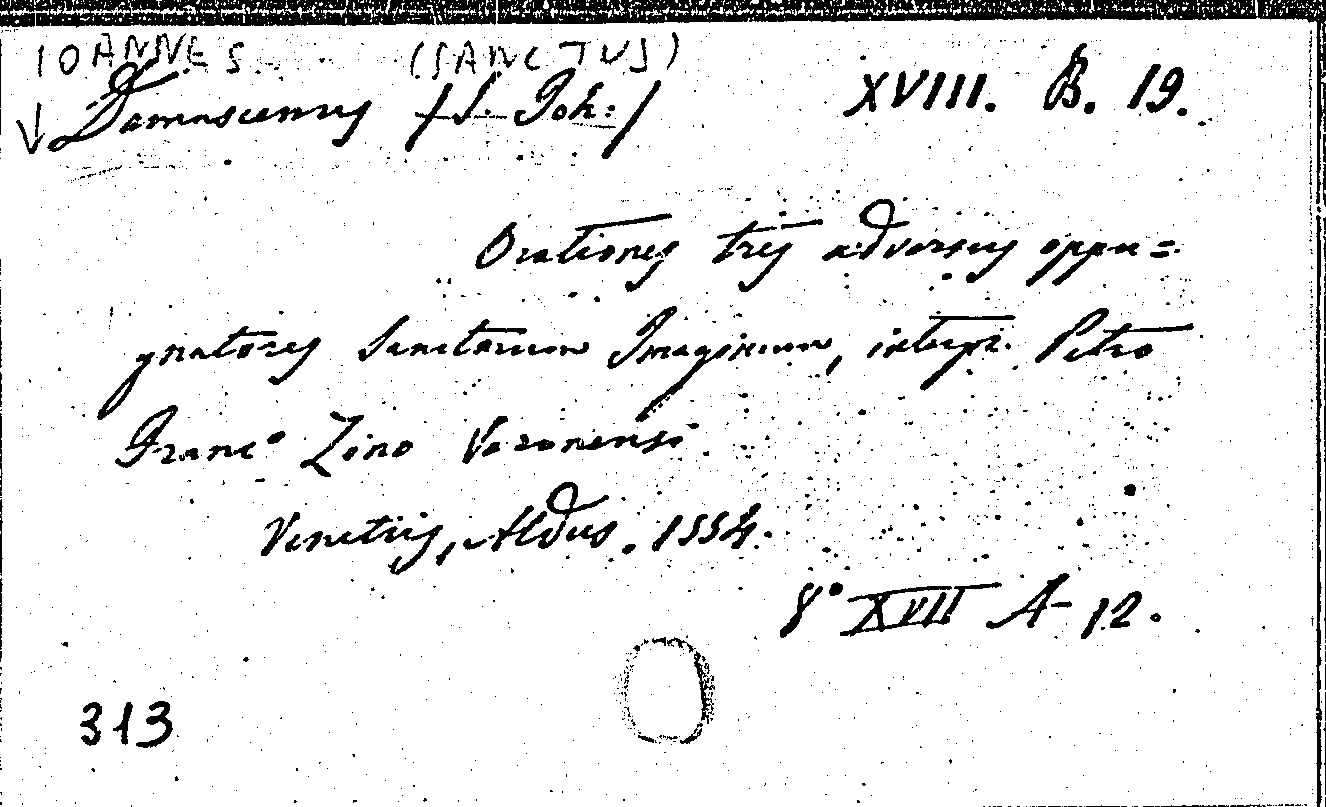 IOANNES (SANCTUS)
Damascenus /S. Joh:/ XVIII. B. 19.
Orationes tres adversus oppu=
gnatores Sanctarum Imaginum, interpr. Petro
Franc° Zino Veronensi
Venetiis, Aldus. 1554.
8° XVII A 12.
313